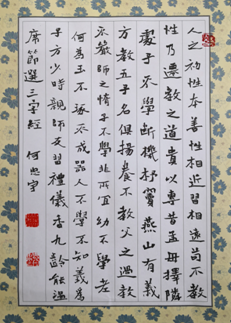 人之初性本善性相近習相遠苟不教
性乃遷教之道貴以專昔孟母擇隣
處子不學斷機杼竇燕山有義
方教五子名俱揚養不教父之過教
不嚴師之惰子不學非所宜幼不學老
何為玉不琢不成器人不學不知義為
子方少時親師友習禮儀香九齡能温
席節選三字經 何